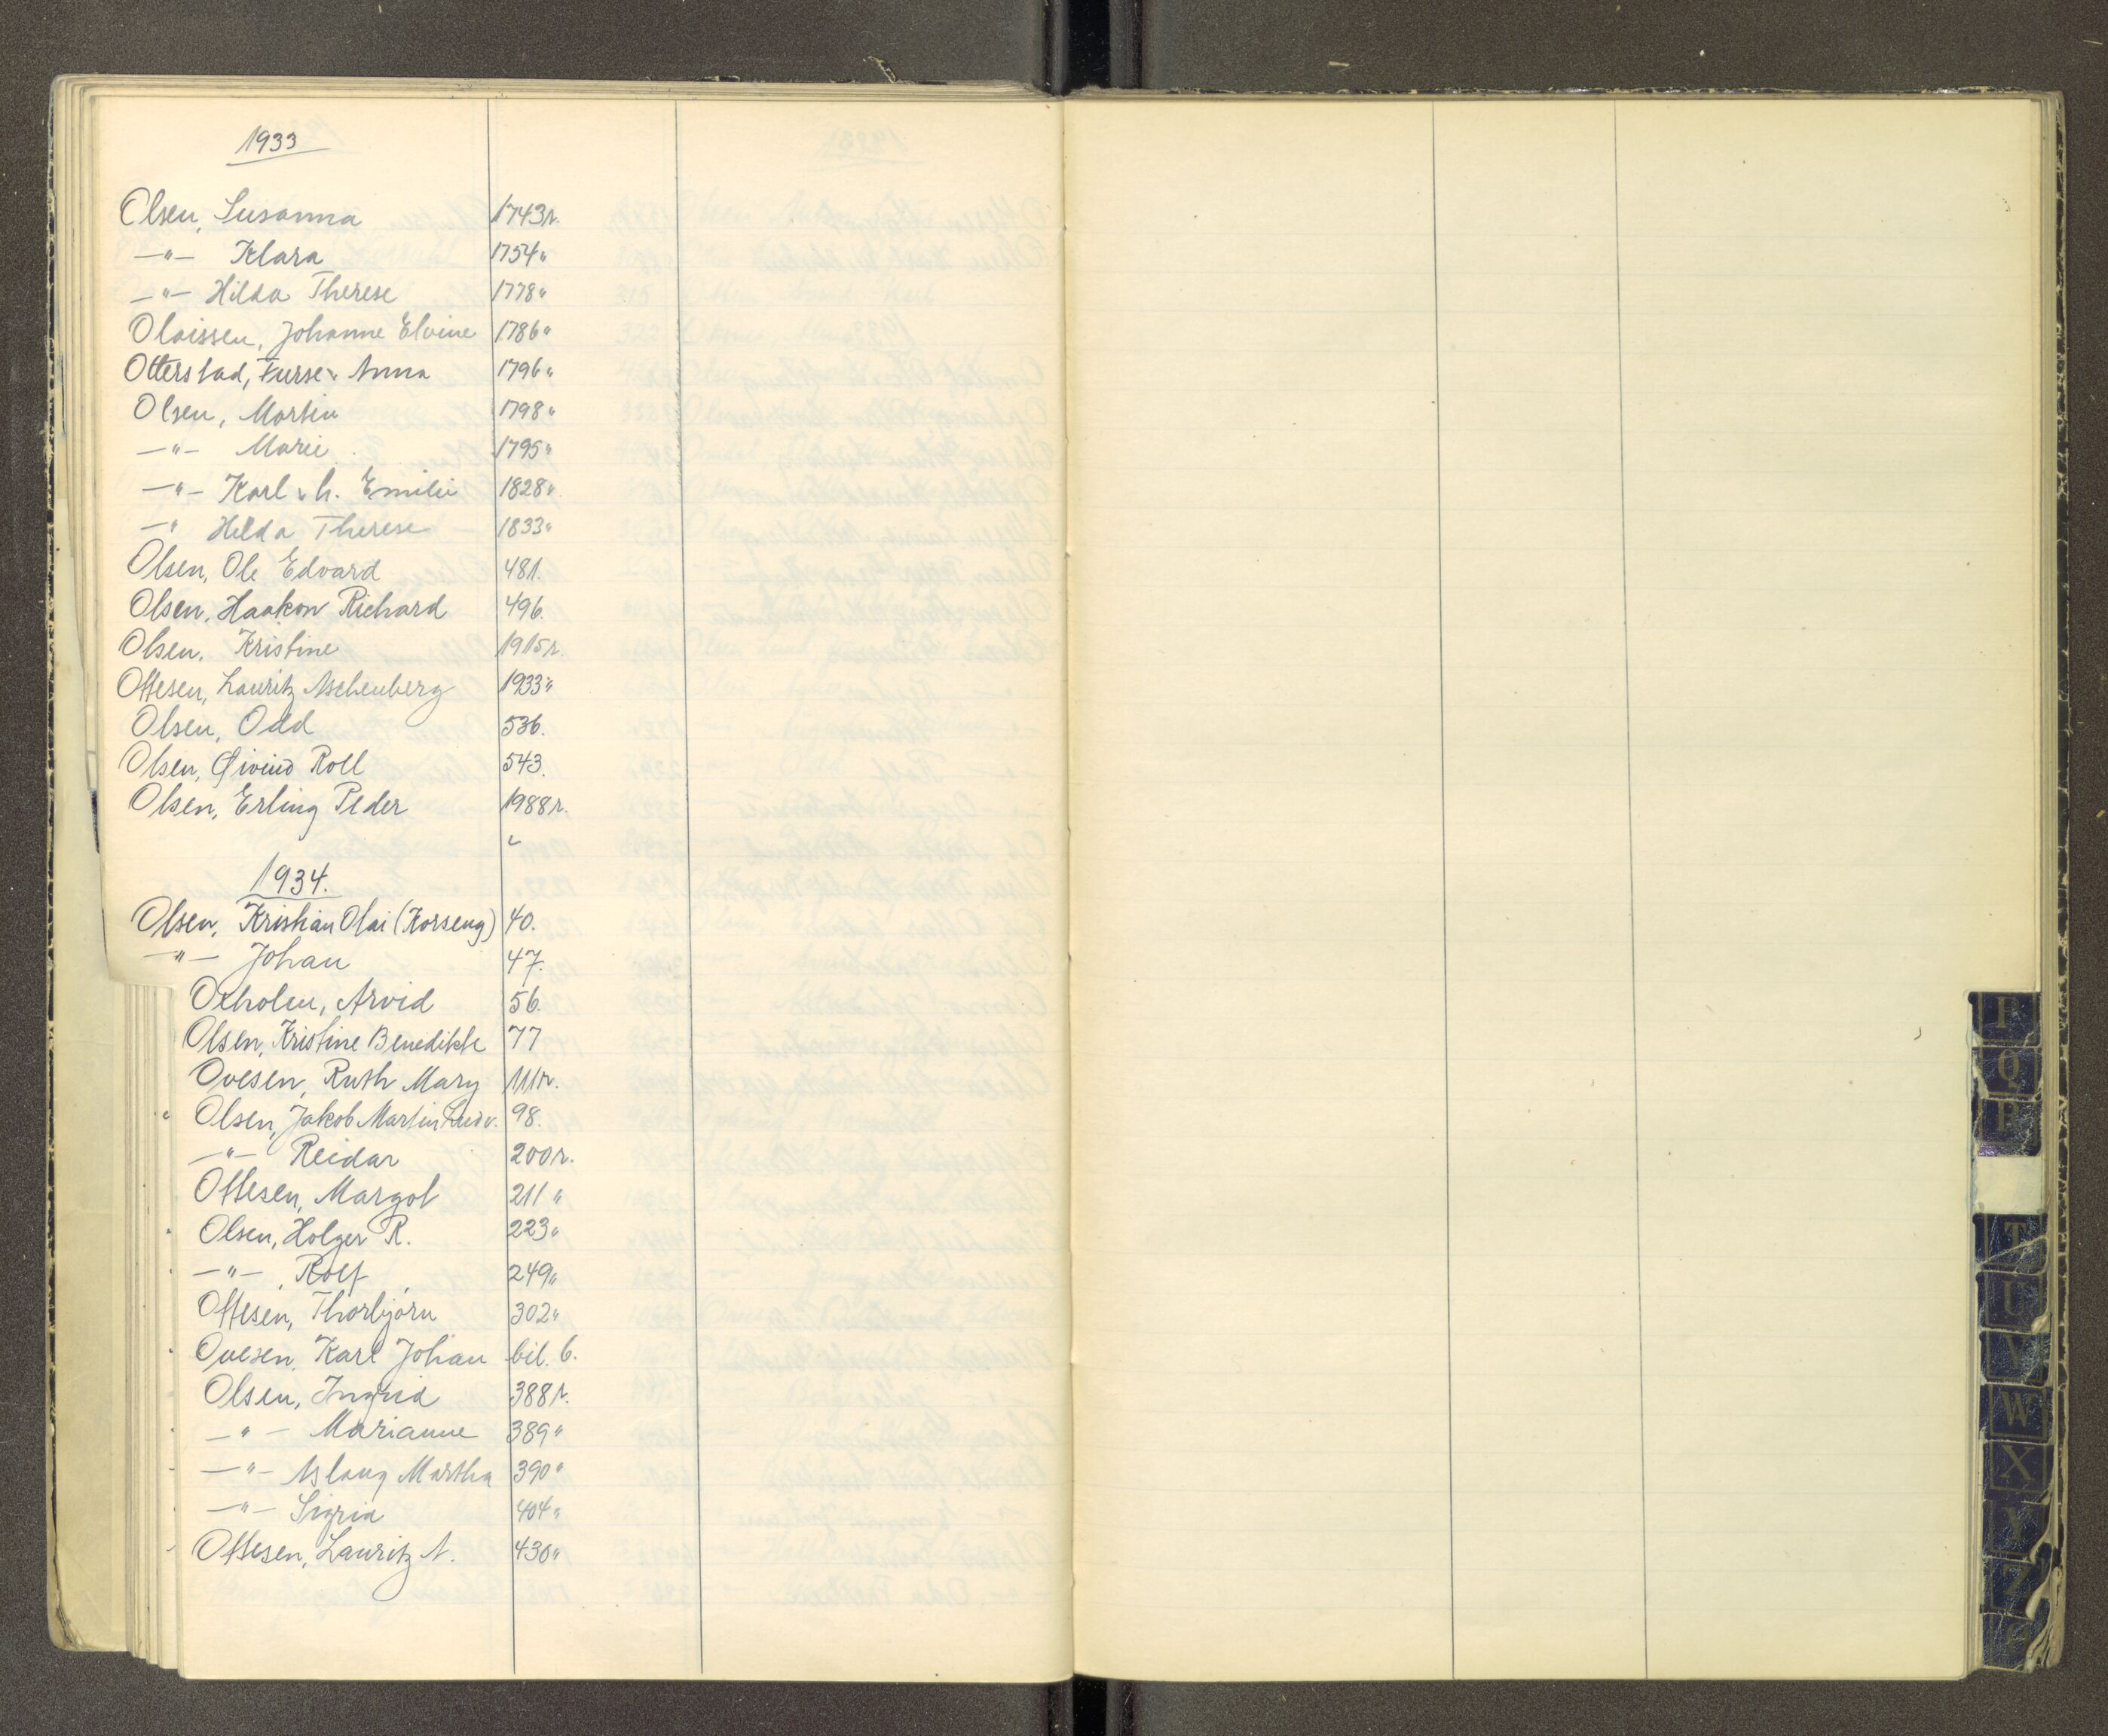 1933
Olsen, Susanna 1743r.
—"— Klara 1754"
—"— Hilda Therese 1778"
Olaissen, Johanne Elvine 1786"
Otterstad, Anna 1796"
Olsen, Martin 1798"
—"— Marie 1795"
—"— Karl v. h. Emilie 1828"
—" Hilda Therese 1833"
Olsen, Ole Edvard 481.
Olsen, Haakon Richard 496.
Olsen, Kristine 1915r.
Ottesen, Lauritz Aschenberg 1933"
Olsen, Odd 536.
Olsen, Øivind Roll 543.
Olsen, Erling Peder 1988r.
1934.
Olsen, Kristian Olai (Korseng) 40.
—"— Johan 47.
Oxholm, Arvid 56.
Olsen, Kristine Benedikte 77
Ovesen, Ruth Mary 111r.
Olsen, Jakob Martin Ludv. 98.
—"— Reidar 200r.
Ottesen, Margot 211"
Olsen, Holger R. 223"
—"—, Rolf 249"
Ottesen, Thorbjørn 302"
Ovesen, Karl Johan bil. 6.
Olsen, Ingrid 388r.
—"— Marianne 389"
—"— Aslaug Martha 390"
—"— Sigrid 404"
Ottesen, Lauritz A. 430"
P
Q
R
T
U
V
W
X
Y
Z